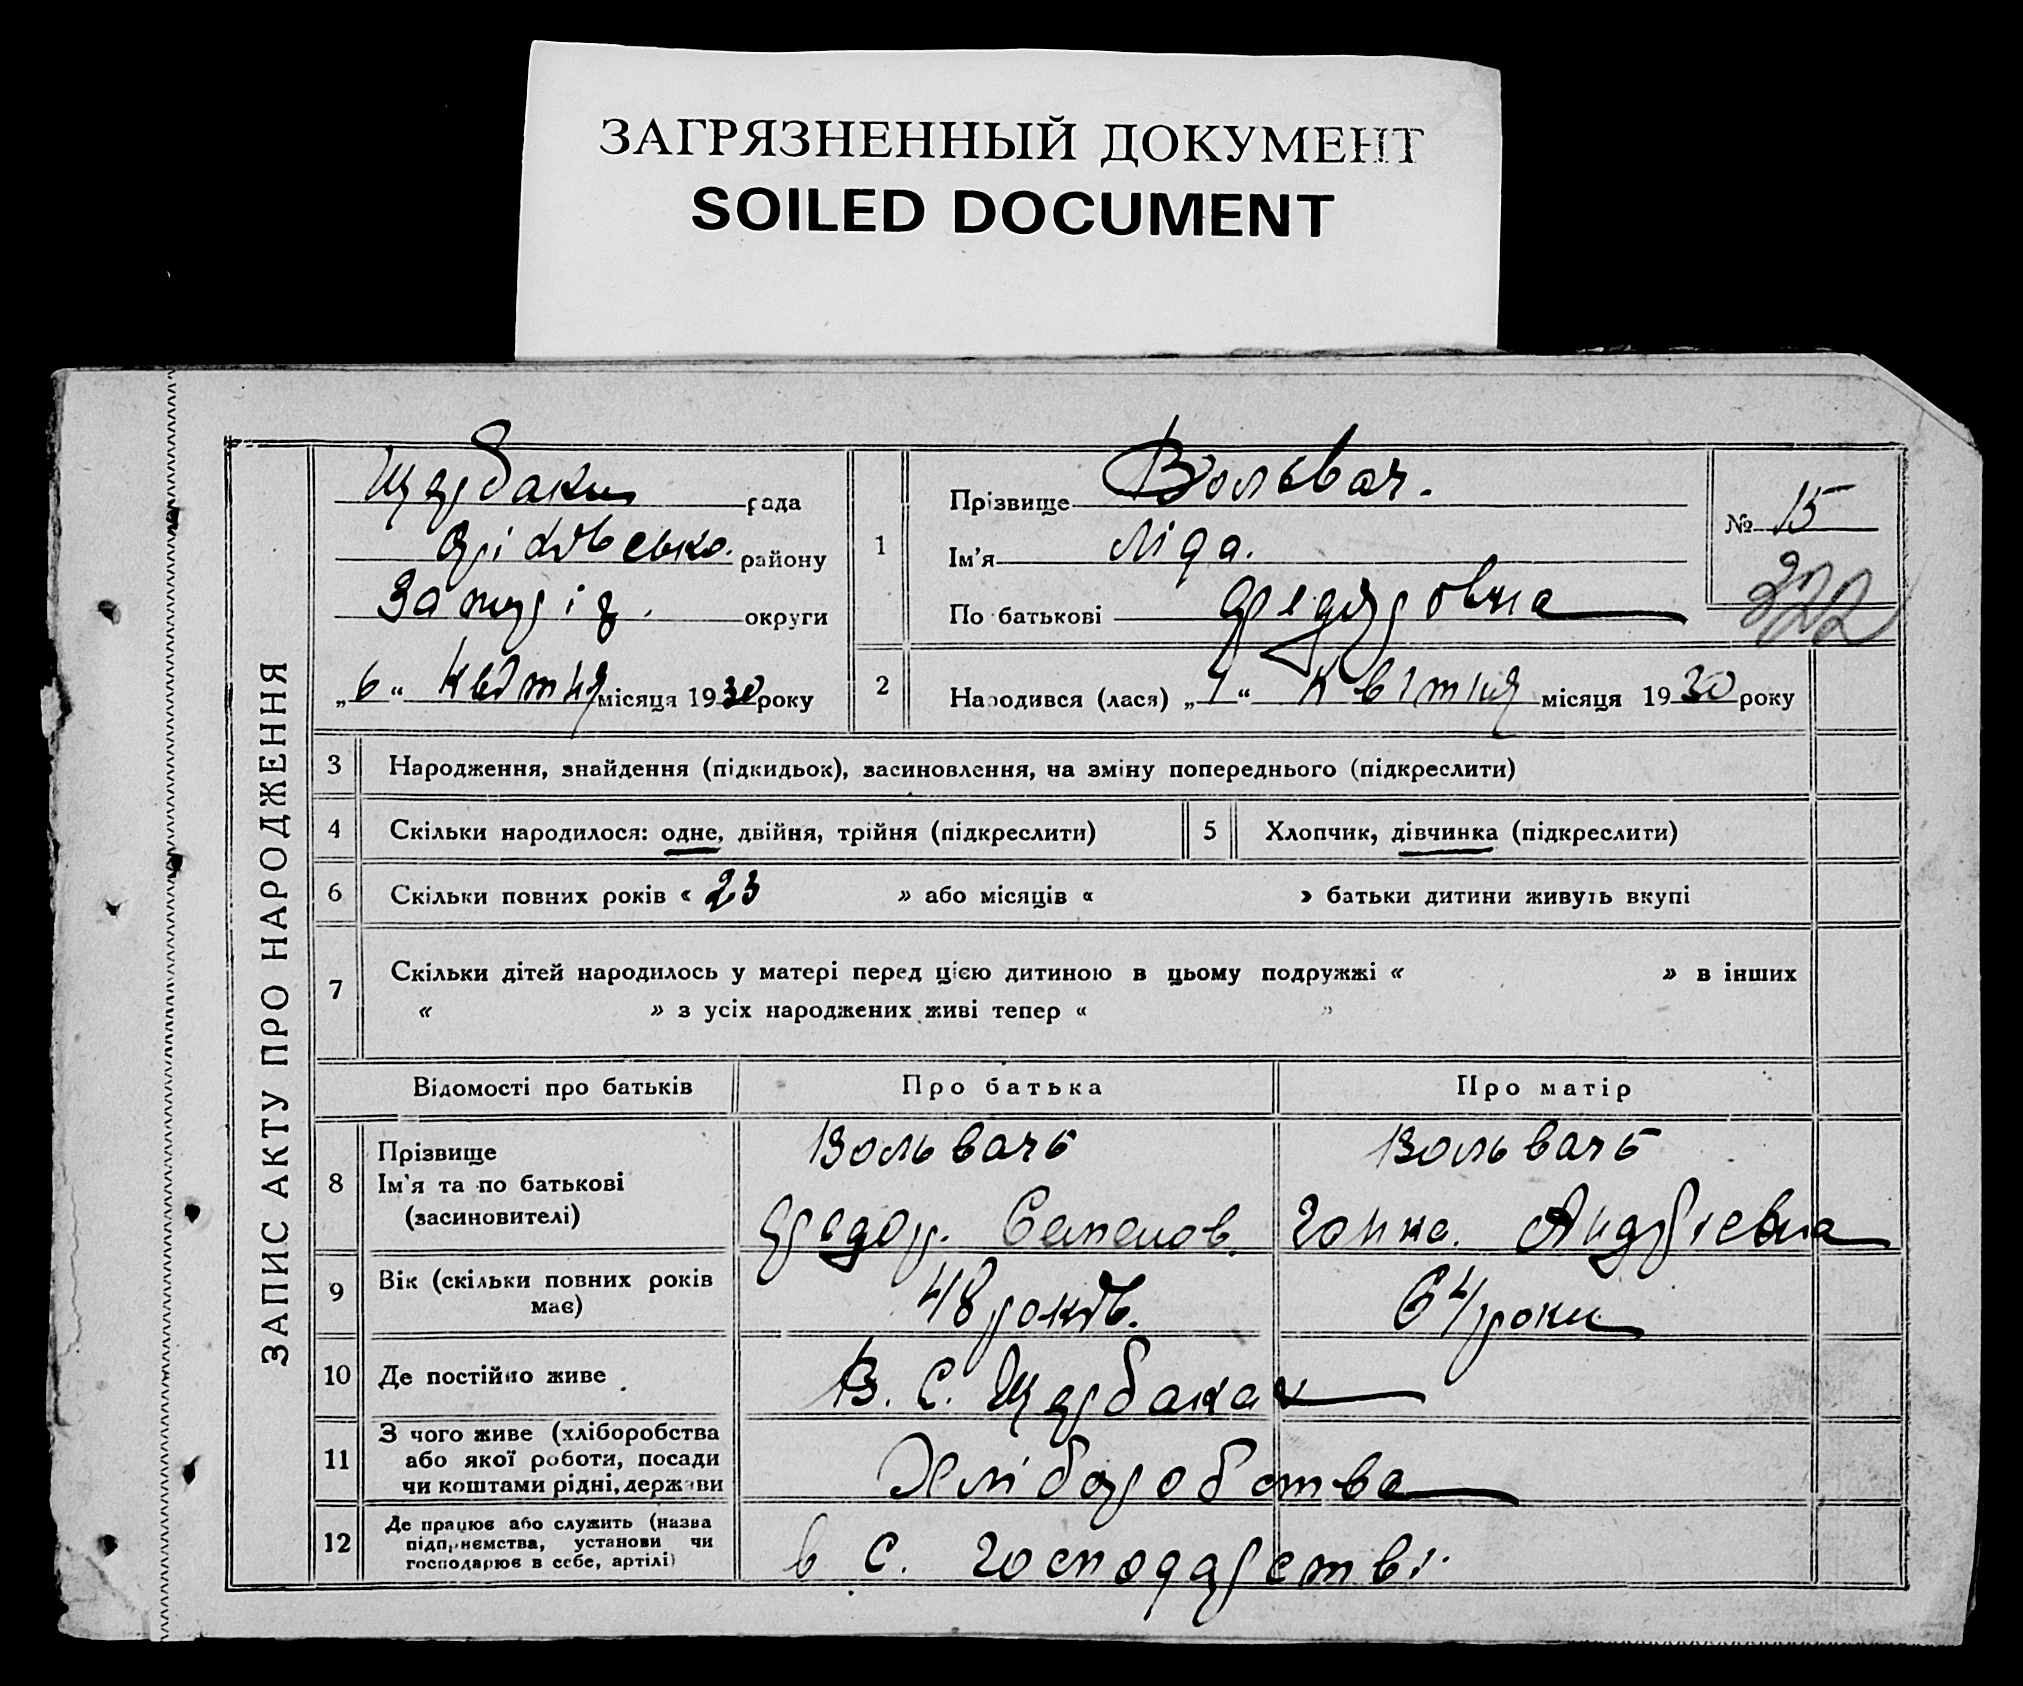 ЗАГРЯЗНЕННЫЙ ДОКУМЕНТ
SOILED DOCUMENT
ЗАПИС АКТУ ПРО НАРОДЖЕННЯ
Щербаки рада
Оріхівсько. району
Запоріз. округи
„6“ квітня місяця 1930 року
1
Прізвище Вольвач.
Ім'я Ліда.
По батькові Федоровна
№ 15
322
2
Народився (лася) „1“ квітня місяця 1930 року
3 Народження, знайдення (підкидьок), засиновлення, на зміну попереднього (підкреслити)
4 Скільки народилося: одне, двійня, трійня (підкреслити)
5 Хлопчик, дівчинка (підкреслити)
6 Скільки повних років « 23 » або місяців « » батьки дитини живуть вкупі
7 Скільки дітей народилось у матері перед цією дитиною в цьому подружжі « » в інших
« » з усіх народжених живі тепер « »
Відомості про батьків Про батька Про матір
8 Прізвище Вольвачь Вольвачь
Ім'я та по батькові
(засиновителі) Федор. Семенов. Ганна. Андріевна
9 Вік (скільки повних років
має) 48 років. 64 роки
10 Де постійно живе В. С. Щербаках
11 З чого живе (хліборобства
або якої роботи, посади
чи коштами рідні, держави Хліборобства
12 Де працює або служить (назва
підприємства, установи чи
господарює в себе, артілі) в С. Господарстві